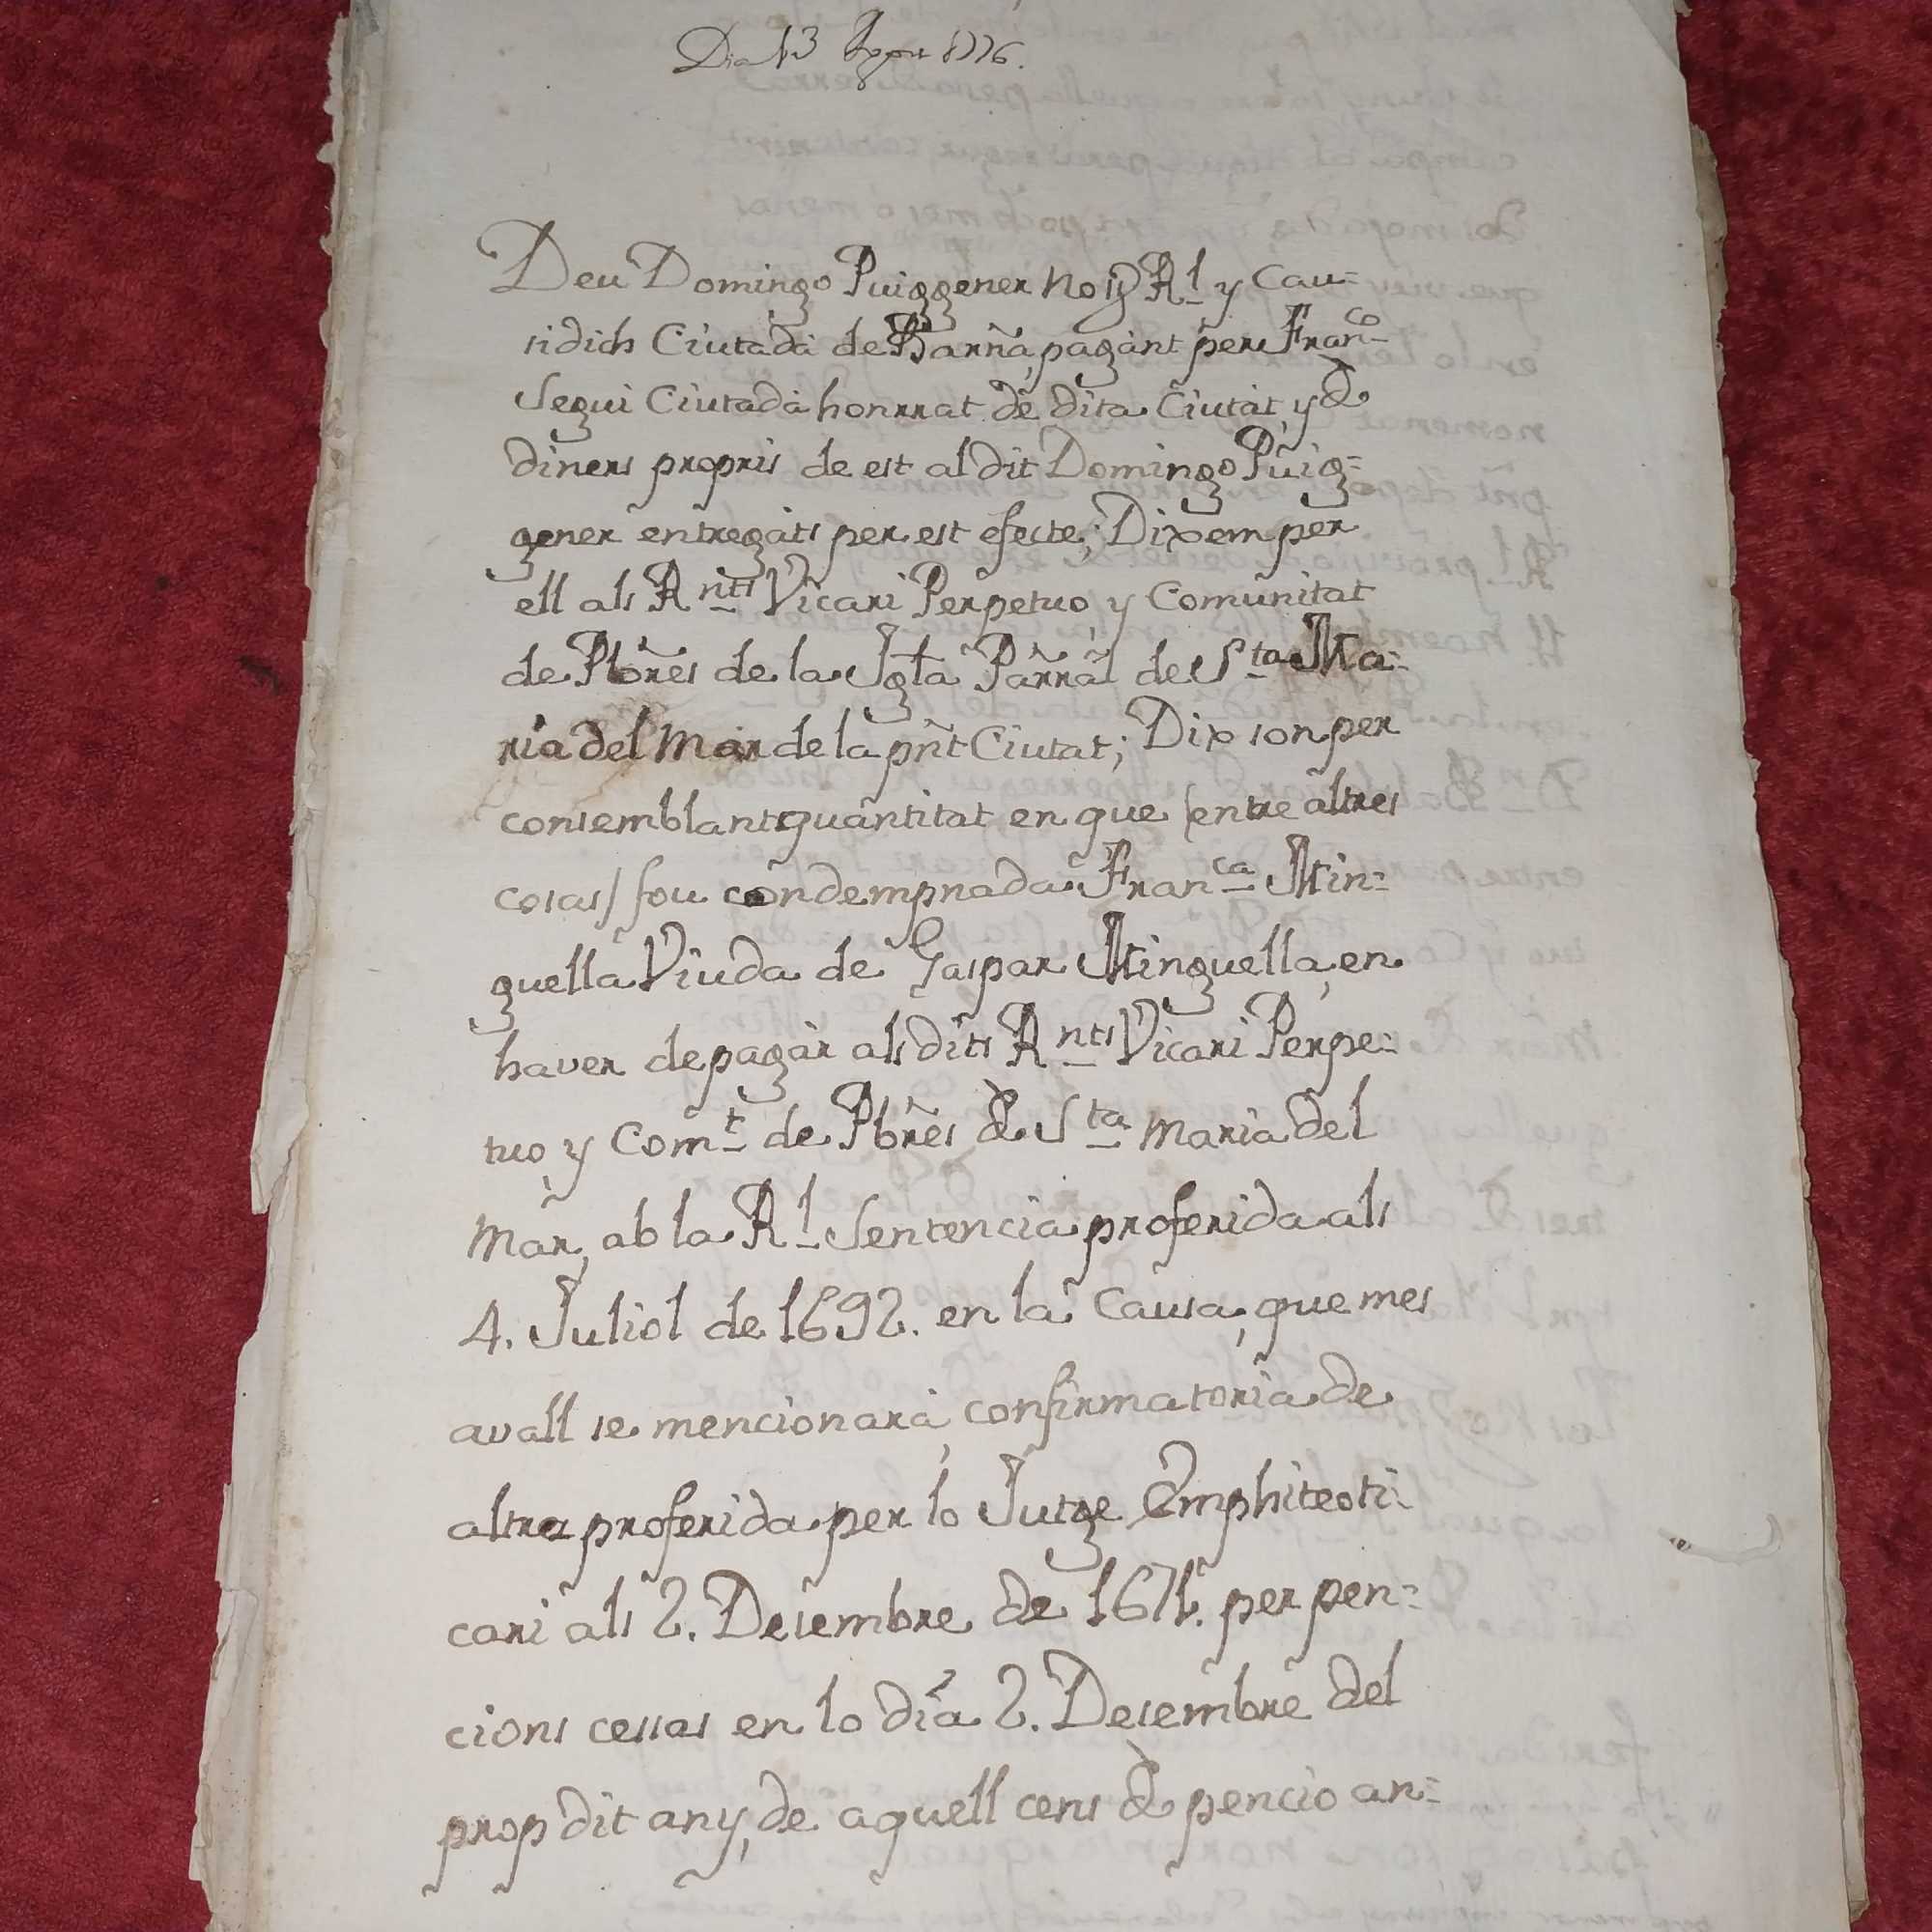 Dia 13 1776.
Deu Domingo Puiggener Not.ͬ R.l y Cau=
sidich Ciutadá de Barña, pagant per Fran.co
Segui Ciutadá honrrat de dita Ciutat, y de
diners propris de est al dit Domingo Puig=
gener entregats per est efecte; Dix em per
ell als Rnts Vicari Perpetuo, y Comunitat
de Pbres de la Igla Parral de Sta Ma=
ria del Mar de la pñt Ciutat; Dix son per
consemblant quantitat en que (entre altres
cosas) fou condempnada Franca Min=
guella Viuda de Gaspar Minguella, en
haver de pagar als dits Rnts Vicari Perpe=
tuo, y Comt de Pbres de Sta Maria del
Mar, ab la Rl Sentencia proferida als
4. Juliol de 1692. en la Causa, que mes
avall se mencionará, confirmatoria de
altra proferida per lo Jutge Emphiteoti=
cari als 2. Desembre de 1671. per pen=
cions cessas en lo día 2. Desembre del
prop dit any, de aquell cens de pencio an=